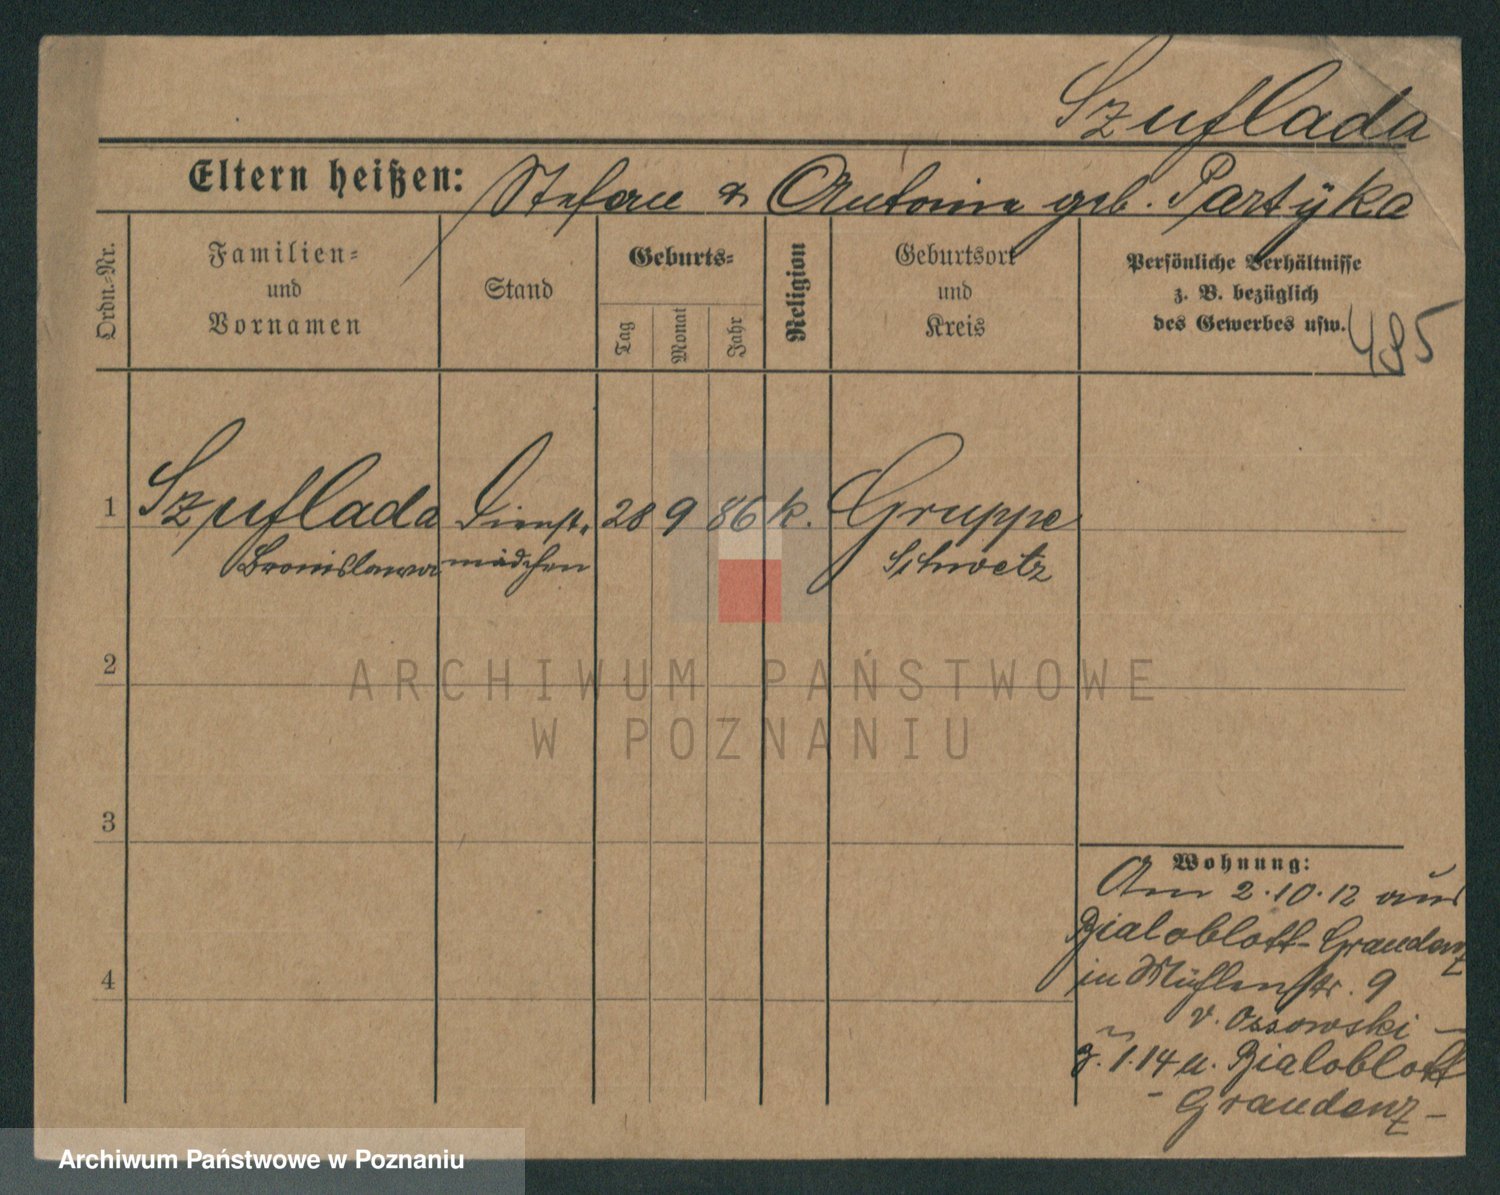 Szuflada
Eltern heißen: Stefan & Antonine geb. Partÿka
Ordn.-Nr.
Familien-
und
Vornamen
Stand
Geburts-
Tag
Monat
Jahr
Religion
Geburtsort
und
Kreis
Persönliche Verhältnisse
z. B. bezüglich
des Gewerbes usw.
495
1 Szuflada Dienst- 28 9 86 k. Gruppe
Bronislawa mädchen Schwetz
2
ARCHIWUM PAŃSTWOWE
W POZNANIU
3
4
Wohnung:
Am 2.10.12 aus
Bialoblott-Graudenz
in Mühlenstr. 9
v. Ossowski –
3.1.14 n. Bialoblott
- Graudenz -
Archiwum Państwowe w Poznaniu